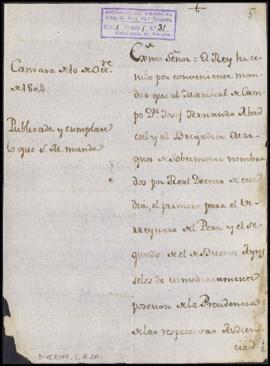 5
ARCHIVO DE ABASCAL
Camara de 10 de Dic.e
de 1804.
Publicada y cumplase
lo que S. M. manda
Exmo Señor = El Rey ha te
nido por conveniente man
dar que al Mariscal de Cam
po Dn. Josef Fernando Abas
cal y al Brigadier Mar
ques de Sobremonte nombra
dos por Real Decreto de este
dia, el primero para el Vi
rreynato del Peru y el se
gundo el de Buenos Ayres
se les de inmediatamente
posesion de la Presidencia
de las respectivas Audien
cias
DIVERSOS, 1, N.20